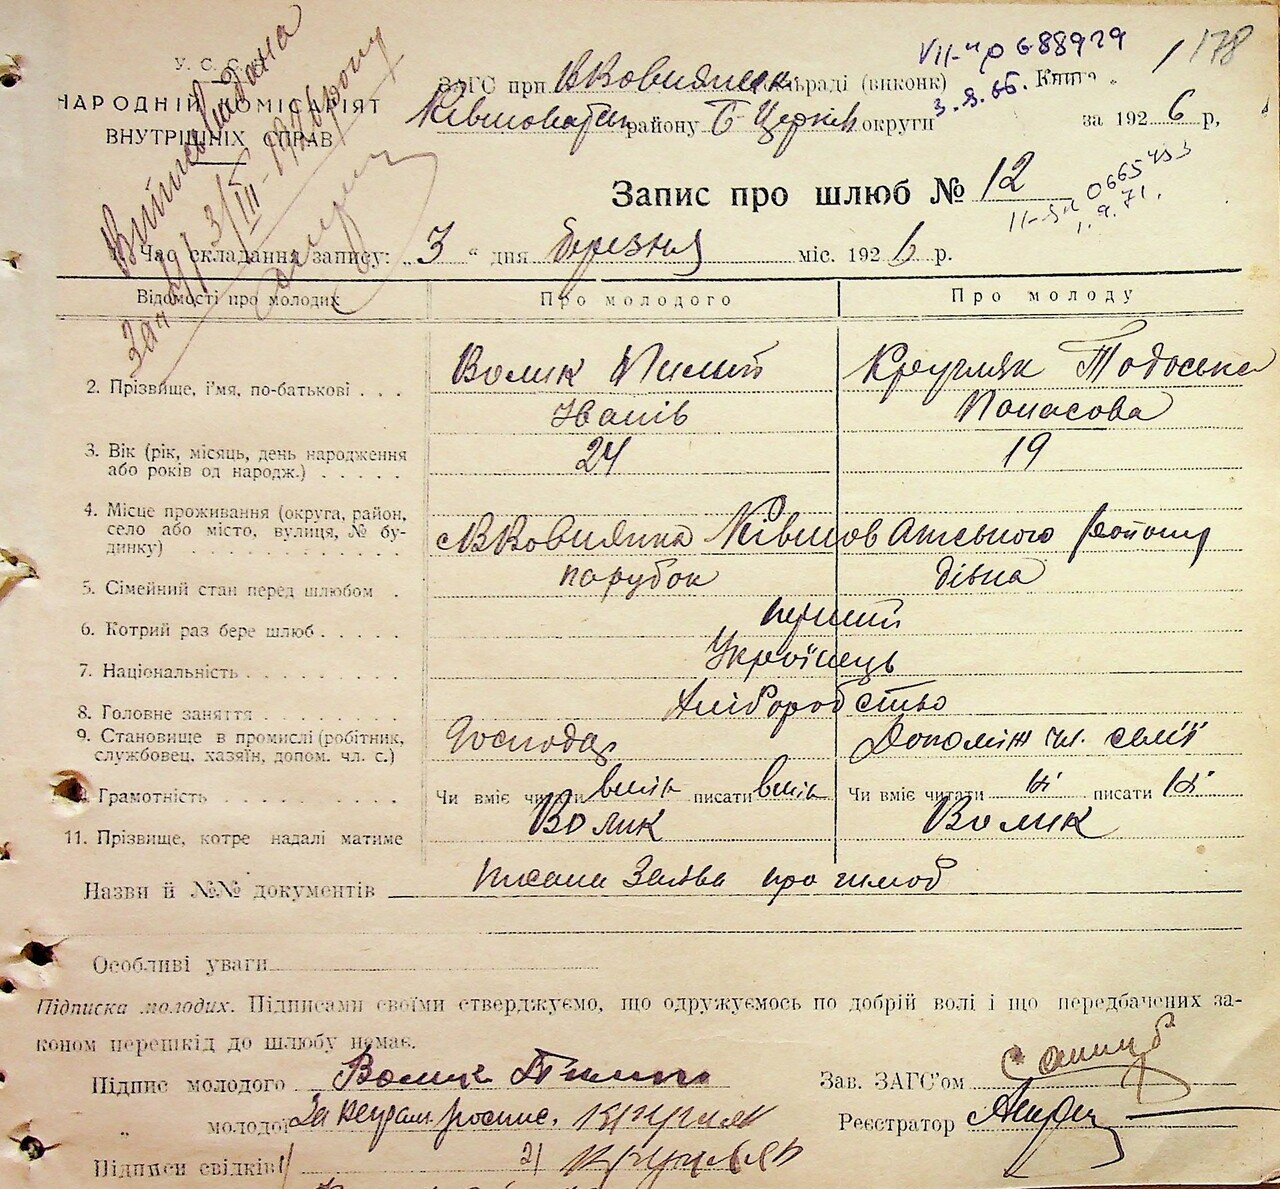 VII-ир 688929
178
У. С. С. Р.
ЗАГС при ВКовшянськ. сільраді (виконк) Книга „ 1
НАРОДНІЙ КОМІСАРІЯТ
3.8.66.
ВНУТРІШНІХ СПРАВ
району Б Церків округи за 1926 р,
Запис про шлюб № 12
II-
0665453
1.9.71.
Виписъ видана
За №
3/III-1926 року
Час складання запису: „3 “ дня березня міс. 1926 р.
Відомості про молодих Про молодого Про молоду
2. Прізвище, і'мя, по-батькові . . . Волик Пилип Кругляк Тодоська
Іванів Панасова
3. Вік (рік, місяць, день народження 24 19
або років од народж.) . . . . .
4. Місце проживання (округа, район,
село або місто, вулиця, № бу-
динку) району
5. Сімейний стан перед шлюбом . парубок дівка
6. Котрий раз бере шлюб . . . . . перший
7. Національність . . . . . . . . . Українець
8. Головне заняття . . . . . . . . Хліборобство
9. Становище в промислі (робітник, Господар Допоміж чл. семії
службовец, хазяїн, допом. чл. с.)
Грамотність . . . . . . . . . . Чи вміє читати вмів писати вмів Чи вміє читати ні писати ні
11. Прізвище, котре надалі матиме Волик Волик
Назви й №№ документів Писана Заява про шлюб
Особливі уваги
Підписка молодих. Підписами своїми стверджуємо, що одружуємось по добрій волі і що передбачених за-
коном перешкід до шлюбу немає.
Підпис молодого Волик Пилип Зав. ЗАГС'ом
„ молодої За неграм. роспис. Кругляк Реєстратор
Підписи свідків 1/ 2/ Кругляк